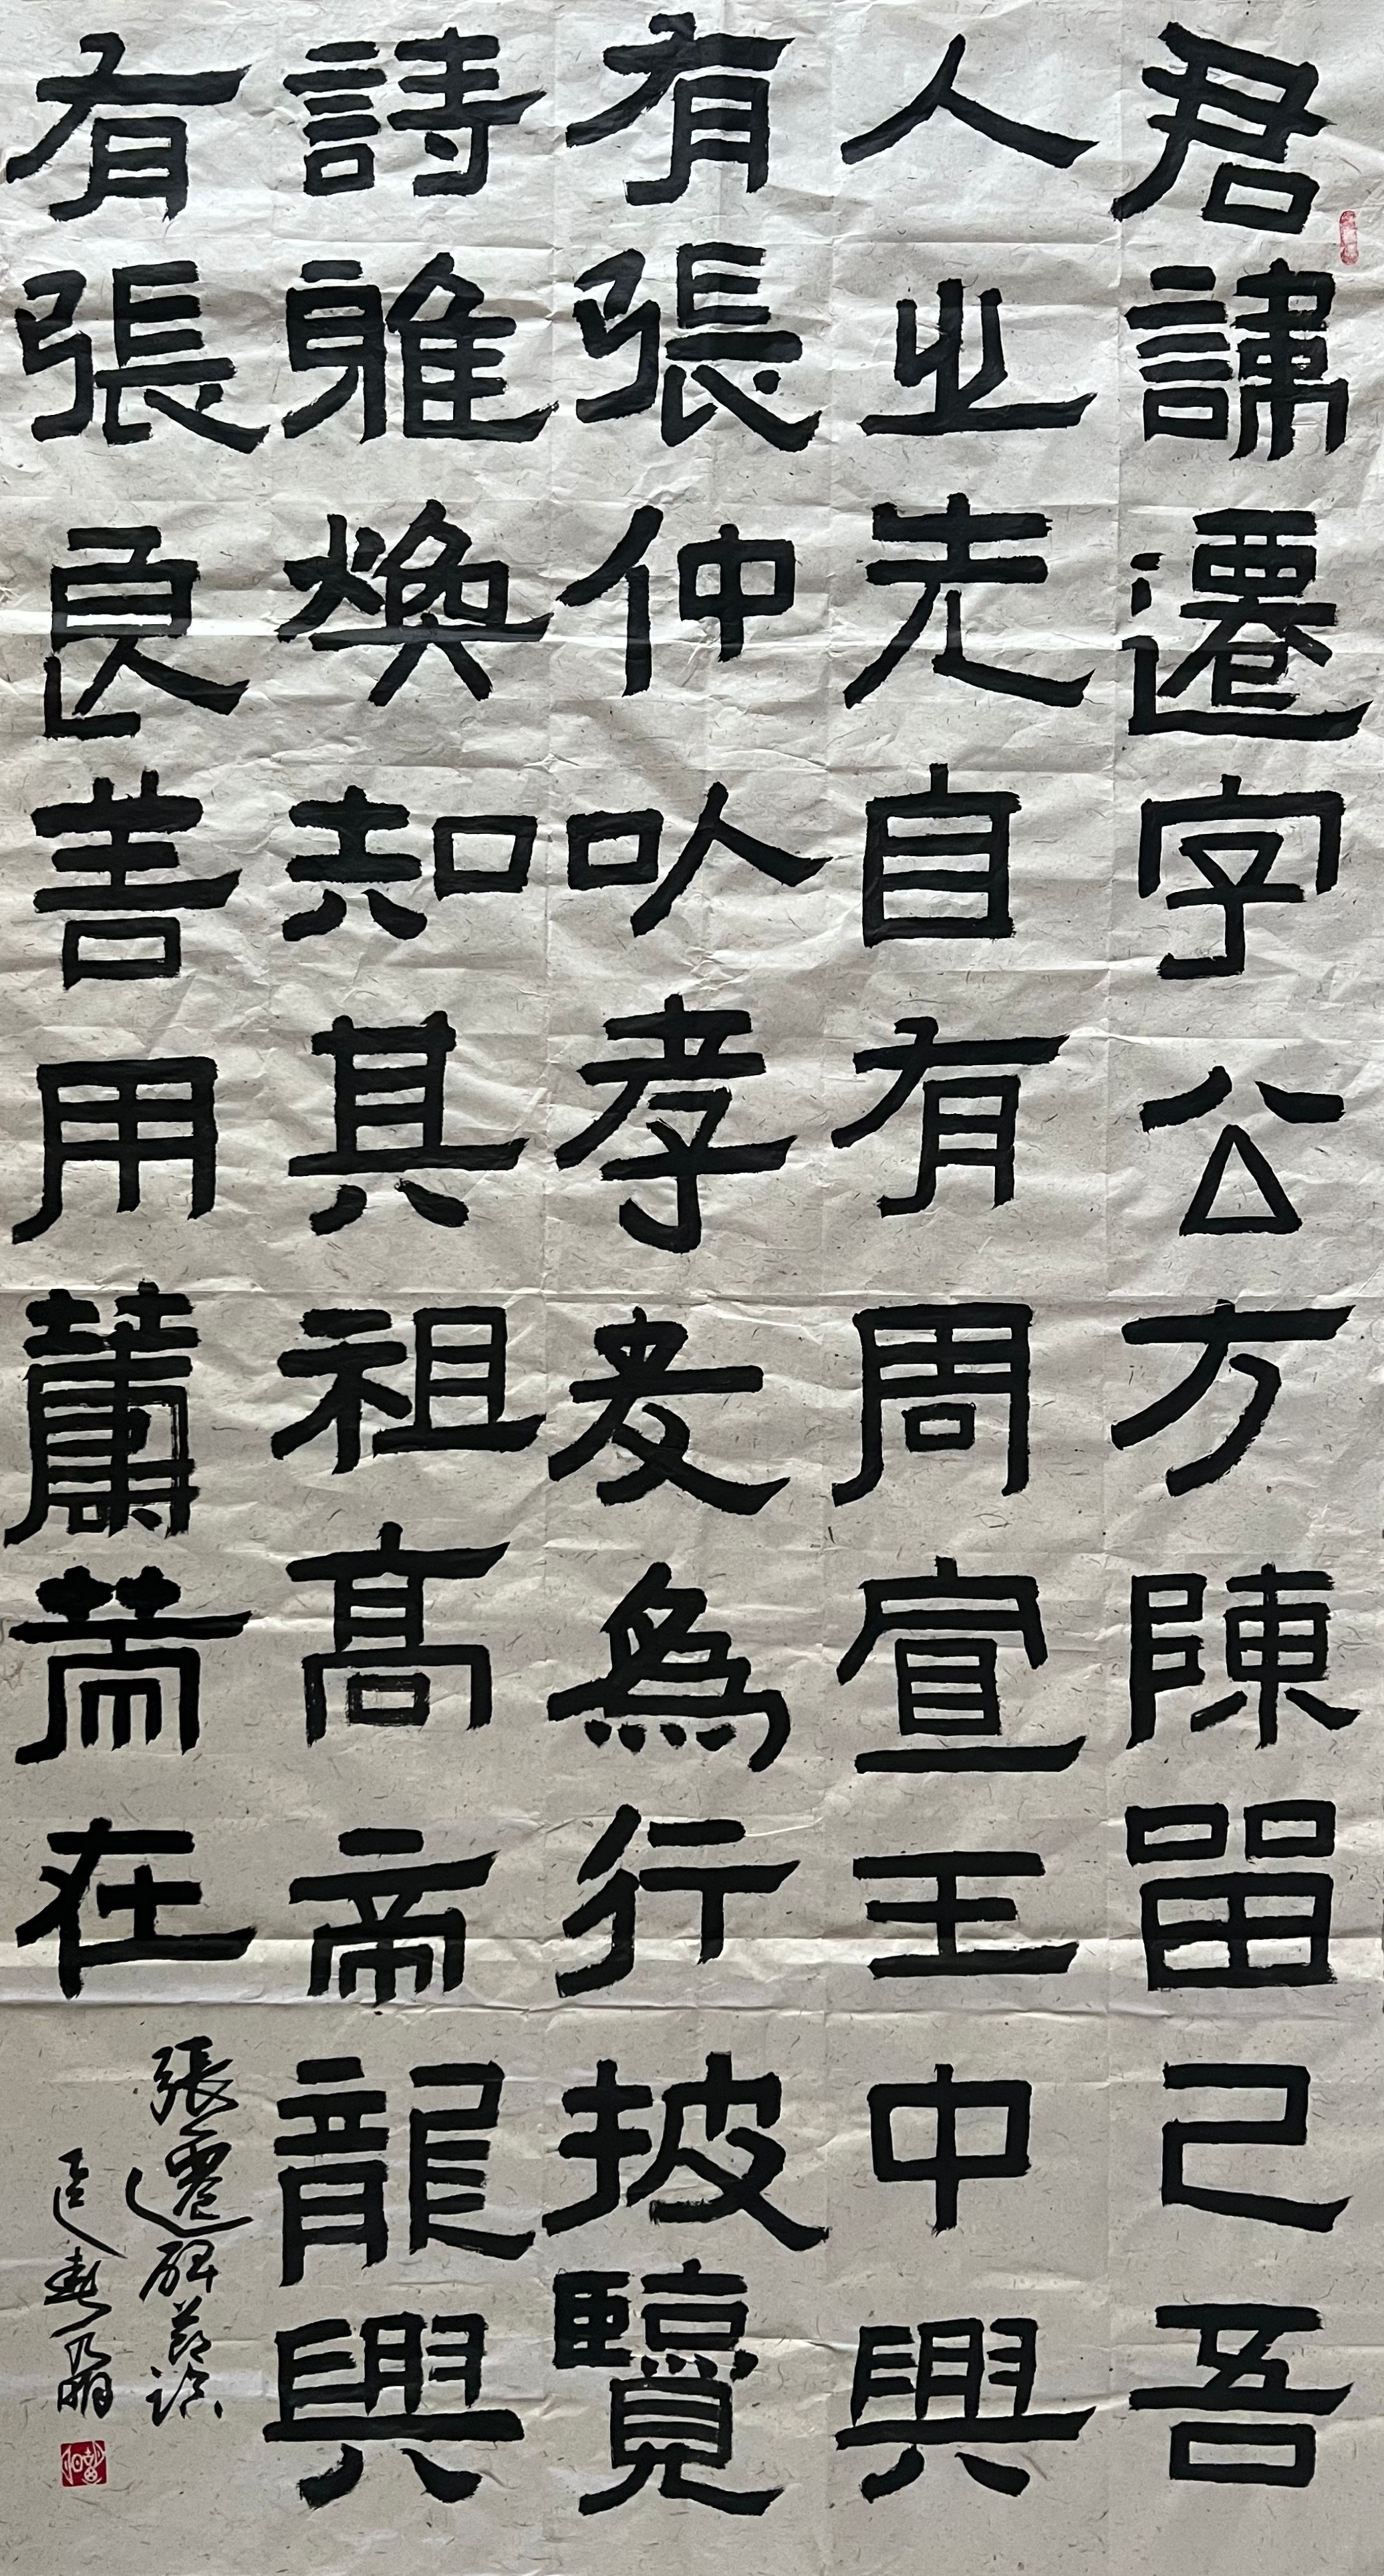 君諱遷字公方陳留己吾
人之先自有周宣王中興
有張仲以孝友為行披覽
詩雅煥知其祖高帝龍興
有張良善用籌策在
張遷碑節臨